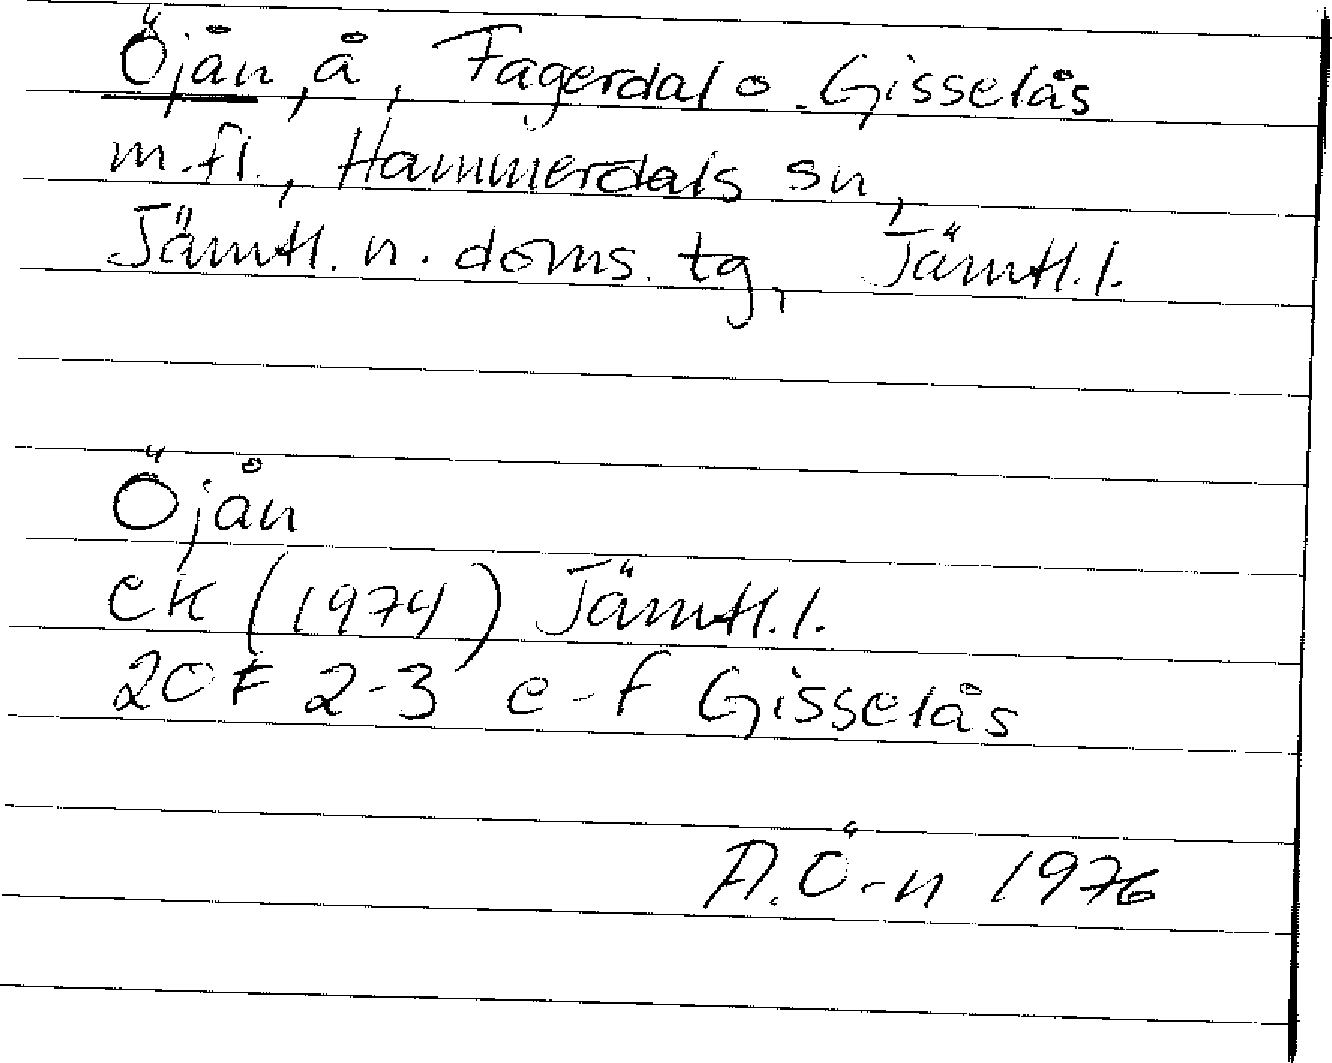 Öjån, å, Fagerdal o. Gisselås
m.fl., Hammerdals sn,
Jämtl. n. doms. tg, Jämtl.l.
Öjån
ek (1974) Jämtl.l.
20F 2-3 e-f Gisselås
A.Ö-n 1976